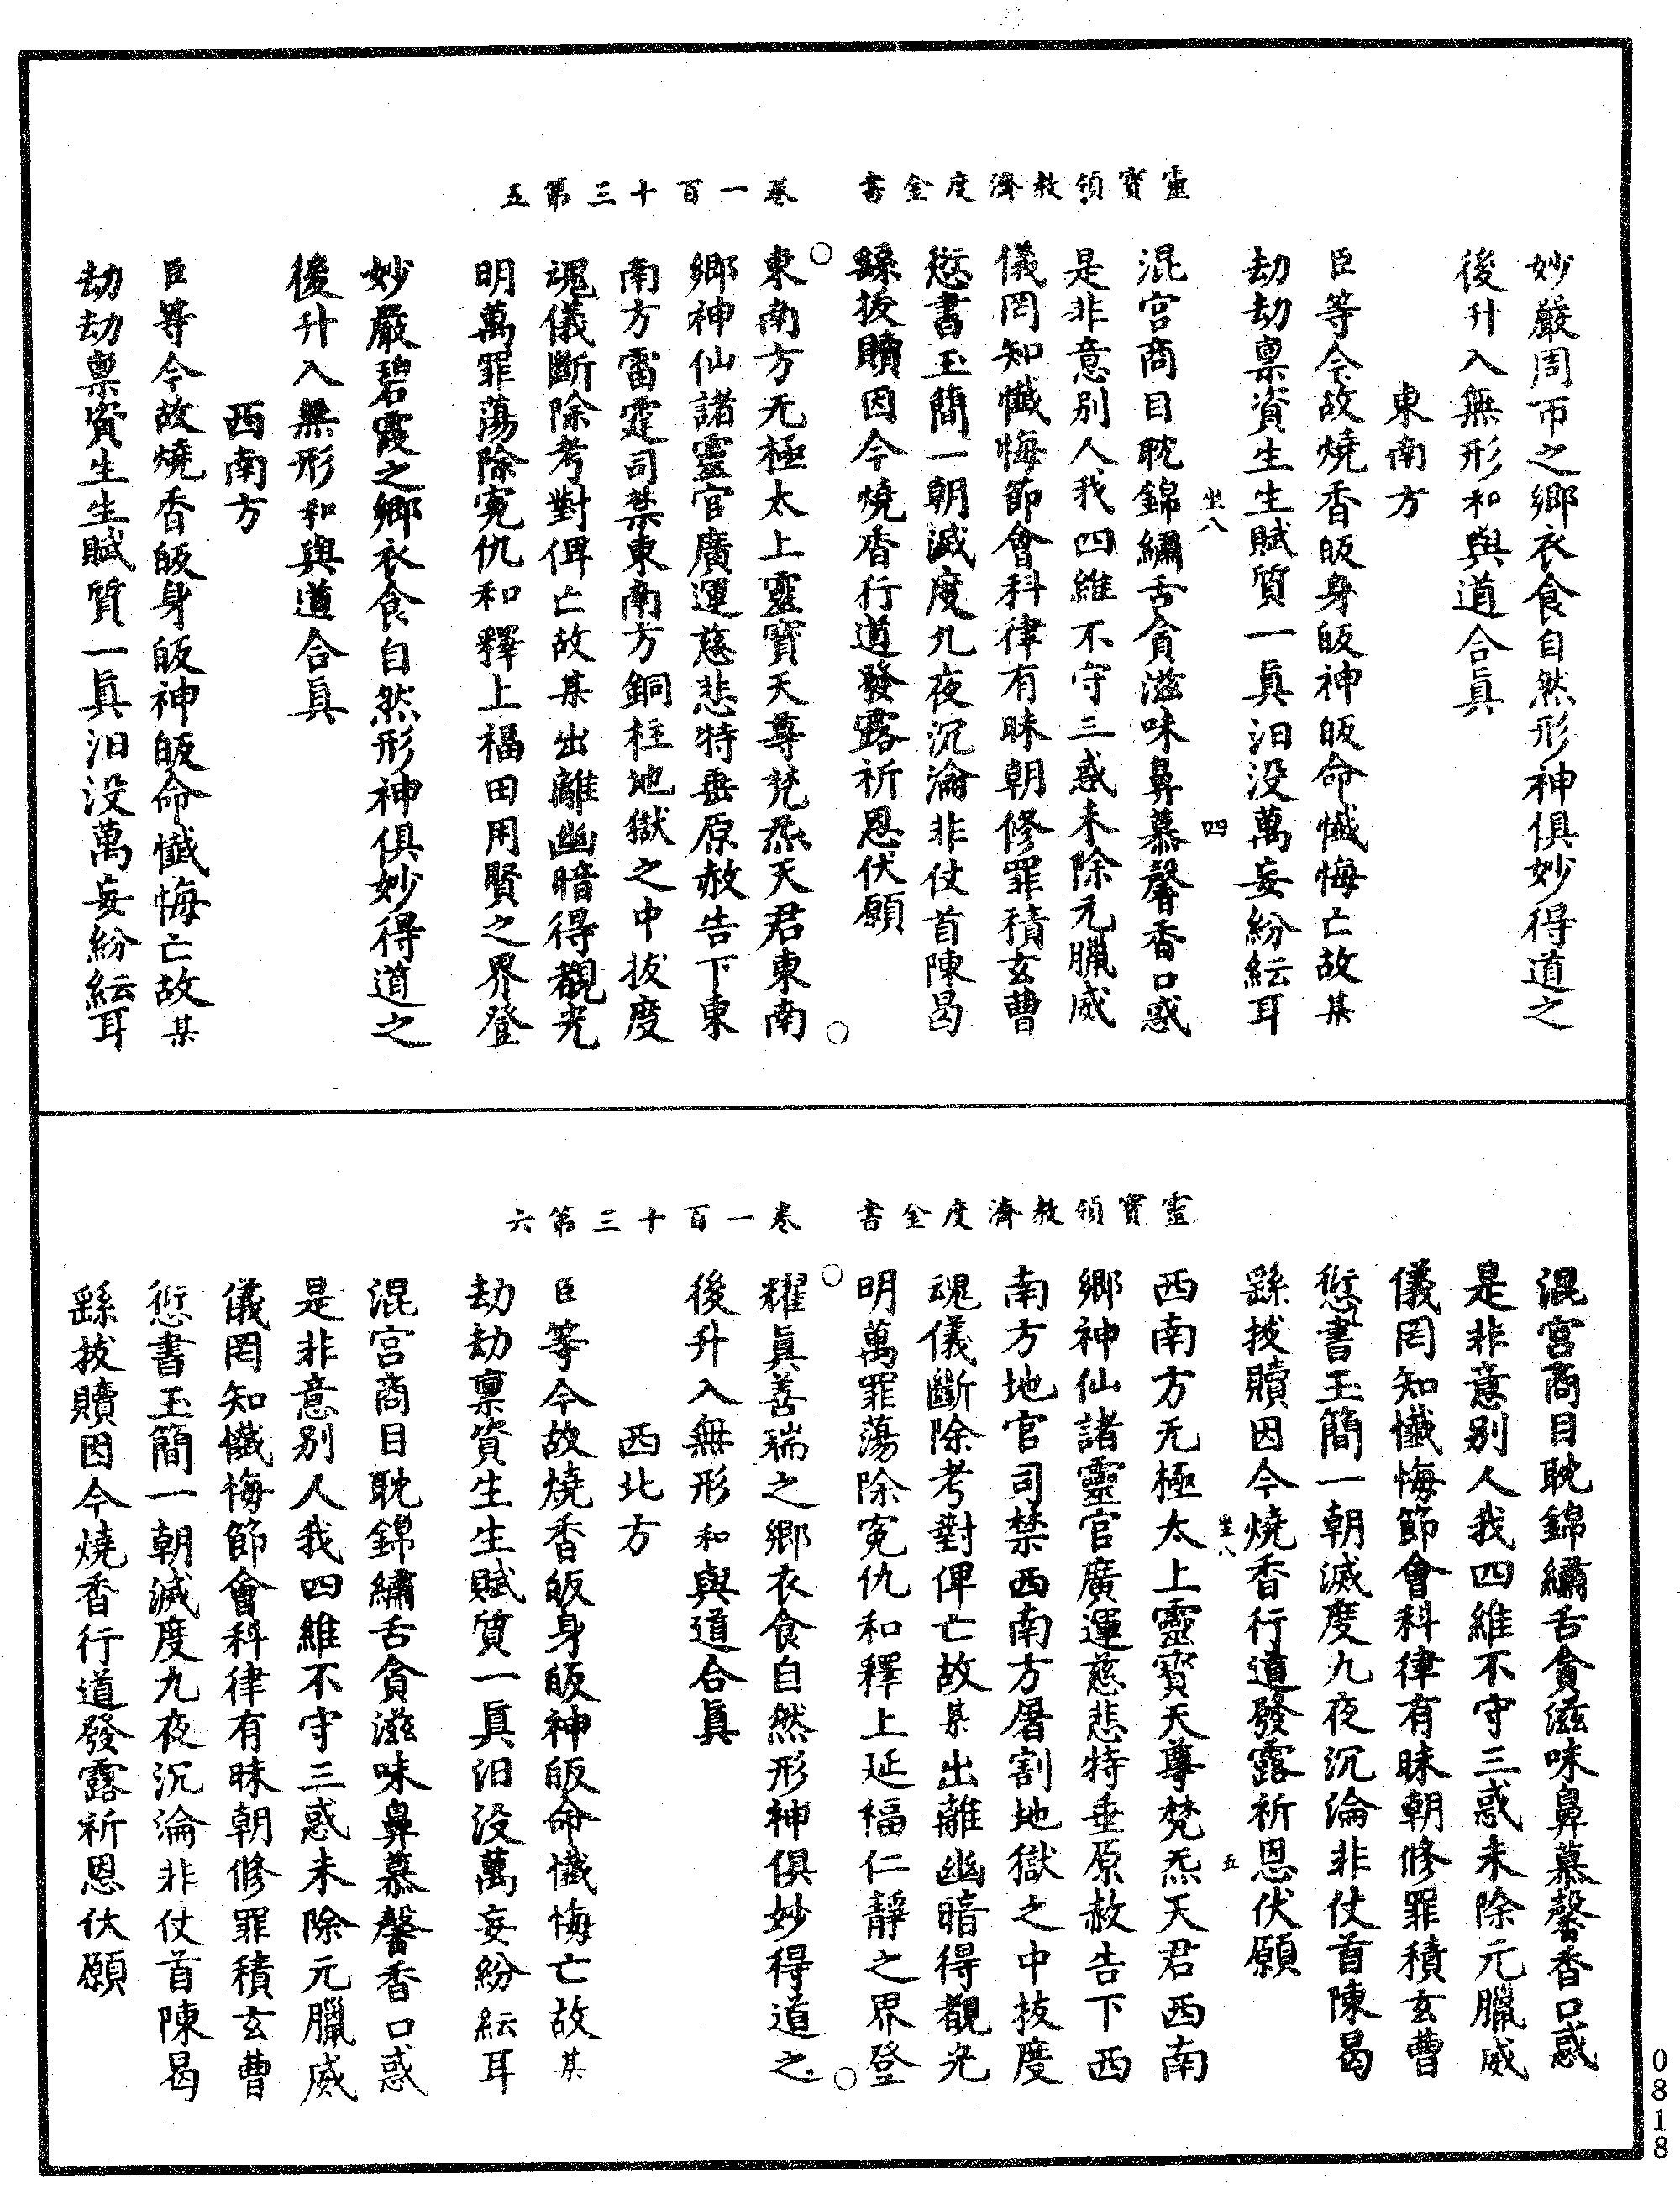 靈寶領教濟度金書 卷一百十三第五
妙嚴周帀之鄉衣食自然形神俱妙得道之
後升入無形和與道合眞
東南方
臣等今故燒香皈身皈神皈命懺悔亡故某
劫劫禀資生生賦質一眞汩没萬妄紛紜耳
坐八 四
混宮商目耽錦繡舌貪滋味鼻慕馨香口惑
是非意别人我四維不守三惑未除元臘威
儀罔知懺悔節會科律有昧朝修罪積玄曹
愆書玉簡一朝滅度九夜沉淪非仗首陳曷
繇拔贖因今燒香行道發露祈恩伏願
東南方无極太上靈寶天尊梵炁天君東南
鄉神仙諸靈官廣運慈悲特垂原赦告下東
南方雷霆司禁東南方銅柱地獄之中拔度
魂儀斷除考對俾亡故某出離幽暗得覩光
明萬罪蕩除寃仇和釋上福田用賢之界登
妙嚴碧霞之鄉衣食自然形神俱妙得道之
後升入無形和與道合眞
西南方
臣等今故燒香皈身皈神皈命懺悔亡故某
劫劫禀資生生賦質一眞汩没萬妄紛紜耳
靈寶領教濟度金書 卷一百十三第六
混宮商目耽錦繡舌貪滋味鼻慕馨香口惑
是非意别人我四維不守三惑未除元臘威
儀罔知懺悔節會科律有昧朝修罪積玄曹
愆書玉簡一朝滅度九夜沉淪非仗首陳曷
繇拔贖因今燒香行道發露祈恩伏願
坐八 五
西南方无極太上靈寶天尊梵炁天君西南
鄉神仙諸靈官廣運慈悲特垂原赦告下西
南方地官司禁西南方屠割地獄之中拔度
魂儀斷除考對俾亡故某出離幽暗得覩光
明萬罪蕩除寃仇和釋上延福仁靜之界登
耀眞善瑞之鄉衣食自然形神俱妙得道之
後升入無形和與道合眞
西北方
臣等今故燒香皈身皈神皈命懺悔亡故某
劫劫禀資生生賦質一眞汩没萬妄紛紜耳
混宮商目耽錦繡舌貪滋味鼻慕馨香口惑
是非意别人我四維不守三惑未除元臘威
儀罔知懺悔節會科律有昧朝修罪積玄曹
愆書玉簡一朝滅度九夜沉淪非仗首陳曷
繇拔贖因今燒香行道發露祈恩伏願
0818